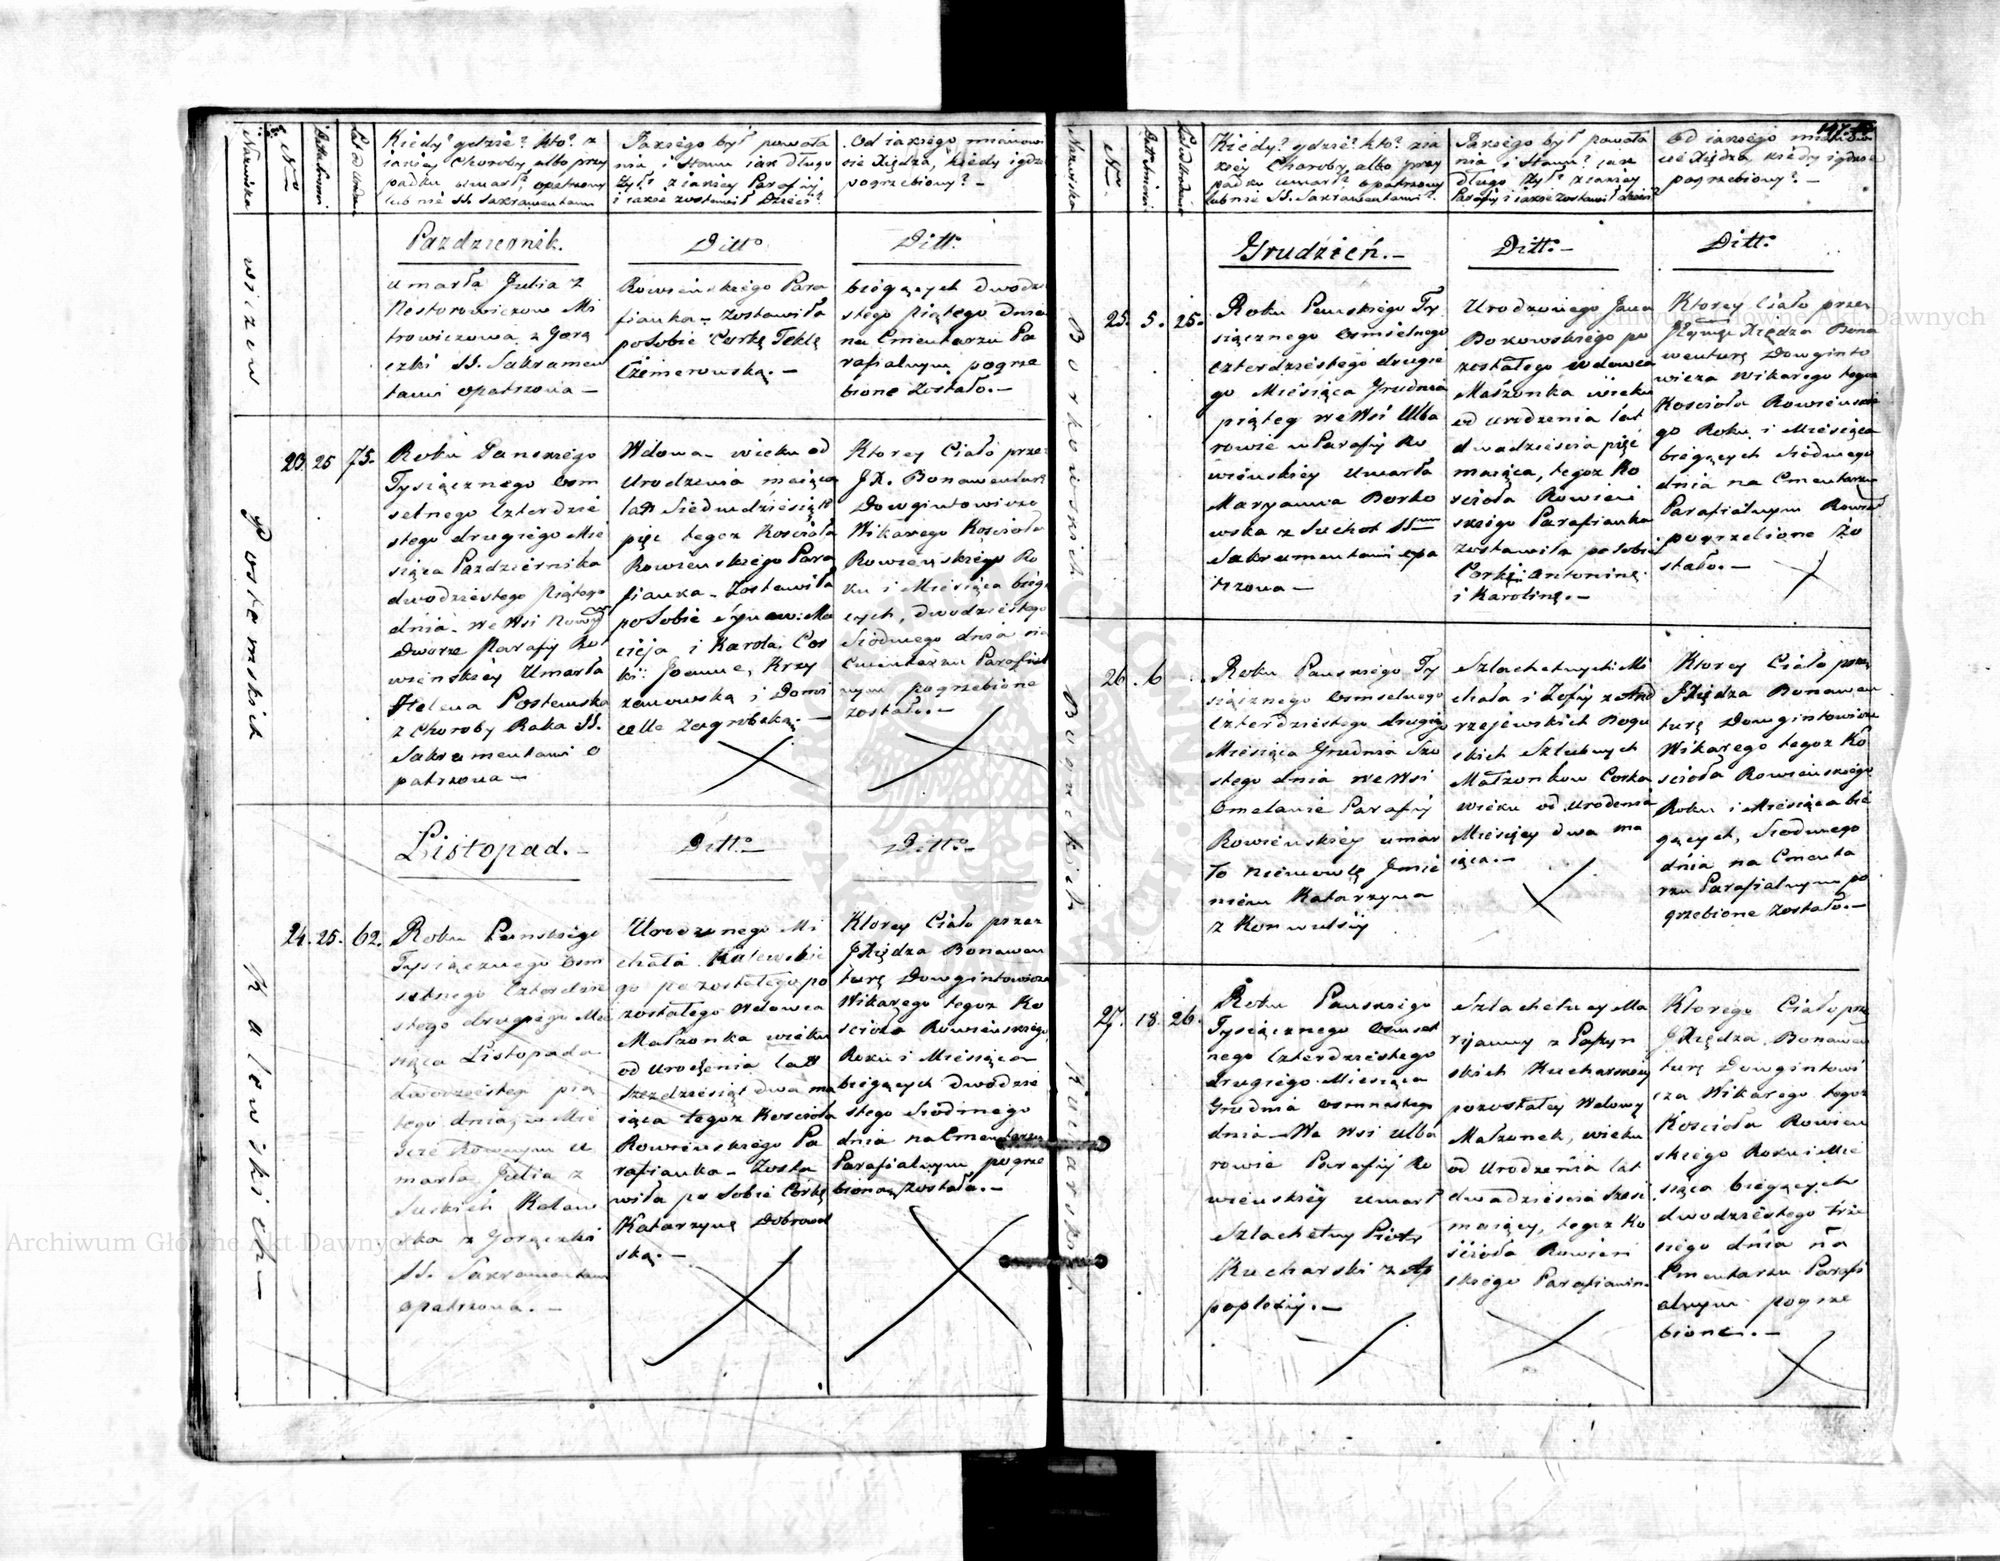 Nazwiska
Nro
Lat od Urodze
Kiedy? gdzie? kto? z
iakiey Choroby albo przy
padku umarł? opatrzony
lub nie SS. Sakramentami
Jakiego był powoła
nia i stanu iak długo
żył? z iakiey Parafij
i iakie zostawił Dzieci?
Od iakiego mianowi
cie Xiędza, kiedy i gdzie
pogrzebiony? —
Pazdziernik.
Ditto
Ditt:
wiczow
umarła Julia z
Nestorowiczow Mi
trowiczowa z Gorą
czki SS. Sakramen
tami opatrzona —
Rowienskiego Para
fianka — zostawiła
po Sobie Corkę Teklę
Czemerowską. —
biegących dwódz
stego piątego dnia
na Cmentarzu Pa
rafialnym pogrze
bione zostało. —
Postemskich
23. 25 75.
Roku Panskiego
Tysiącznego Osm
setnego Czterdzie
stego drugiego Mie
siąca Pazdziernika
dwudziestego piątego
dnia we Wsi Nowym
Dworze Parafij Ro
wienskiey Umarła
Helena Postemska
z choroby Raka SS.
Sakramentami o
patrzona —
Wdowa — wieku od
Urodzenia maiąca
lat Siedmdziesiąt
pięć tegoz Kościoła
Rowienskiego Para
fianka — Zostawiła
po Sobie Synow: Ma
cieja i Karola, Cor
ki: Joannę, Krzy
zanowską i Domi
cellę Zagrobską. —
Ktorey Ciało przez
JX. Bonawenturę
Dowgintowicza
Wikarego Kościoła
Rowienskiego Ro
ku i Miesiąca bieg
cych, dwódziestego
Siodmego dnia na
Cmentarzu Parafial
nym pogrzebione
zostało. —
Listopad. —
Ditto —
Ditto —
Kalewskich —
24. 25. 62.
Roku Panskiego
Tysiącznego Osm
setnego Czterdzie
stego drugiego Mie
siąca Listopada
dwudziestego pią
tego dnia, w Mie
scie Rownym u
marła Julia z
Suskich Kalew
ska z Gorączki
SS. Sakramentami
opatrzona. —
Urodzonego Mi
chała Kalewskie
go pozostałego po
zostałego Wdowca
Małzonka wieku
od Urodzenia lat
Szezdziesiąt dwa ma
iąca tegoz Kościoła
Rowienskiego Pa
rafianka — Zosta
wiła po Sobie Corkę
Katarzynę Dobrowol
ską. —
Ktorey Ciało przez
JXiędza Bonawen
turę Dowgintowicza
Wikarego tegoz Ko
scioła Rowienskiego
Roku i Miesiąca
biegących dwódzie
stego Siodmego
dnia na Cmentarzu
Parafialnym pogrze
biona, zostało. —
Nazwiska
Nro.
Kiedy? gdzie? kto? z ia
kiey Choroby, albo przy
padku umarł? opatrzony
lub nie SS. Sakramentami?
Jakiego był powoła
nia i Stanu? iak
długo żył? z iakiey
Parafij i iakie zostawił dzieci?
Od iakiego mianowi
cie Xiędza, kiedy i gdzie
pogrzebiony? —
Grudzień. —
Ditt: —
Ditt:
Borkowskich
25. 5. 25.
Roku Panskiego Ty
siącznego Osmsetnego
Czterdziestego drugie
go Miesiąca Grudnia
piąteg we Wsi Ulba
rowie w Parafij Ro
wienskiey Umarła
Maryanna Borko
wska z Suchot SSmi
Sakramentami opa
trzona —
Urodzonego Jana
Borkowskiego po
zostałego wdowca
Małzonka wieku
od urodzenia lat
dwadziescia pięć
maiąca, tegoz Ko
scioła Rowien
skiego Parafianka
zostawiła po Sobie
Corkę: Antoninę
i Karolinę. —
Ktorey Ciało przez
JXiędza Bona
wenturę Dowginto
wicza Wikarego tegoz
Kościoła Rowienskie
go Roku i Miesiąca
biegących Siodmego
dnia na Cmentarzu
Parafialnym Rowień
pogrzebione zo
stało. —
26. 6
Roku Panskiego Ty
siącznego Osmsetnego
Czterdziestego drugiego
Miesiąca Grudnia Szo
stego dnia we Wsi
Omelanie Parafij
Rowienskiey umar
ło niemowlę Jmie
niem Katarzyna
z Konwulsij
Szlachetnych Mi
chała i Zofij z And
rzejewskich Bogu
skich Szlubnych
Małzonkow Corka
wieku od urodzenia
Miesięcy dwa ma
iąca. —
Ktorey Ciało przez
JXiędza Bonawen
turę Dowgintowicza
Wikarego tegoz Ko
scioła Rowienskiego
Roku i Miesiąca bie
gących, Siodmego
dnia na Cmenta
rzu Parafialnym po
grzebione zostało. —
Kucharskich
27. 18. 26.
Roku Panskiego
Tysiącznego Osmset
nego Czterdziestego
drugiego Miesiąca
Grudnia Osmnastego
dnia — We Wsi Ulba
rowie Parafij Ro
wienskiey umarł
Szlachetny Piotr
Kucharski z Ap
poplexij. —
Szlachetney Ma
ryanny z Papyn
skich Kucharskiey
pozostałey Wdowy
Małzonek, wieku
od Urodzenia lat
dwadziescia szesć
maiący, tegoz Ko
scioła Rowien
skiego Parafianin.
Ktorego Ciało prz
JXiędza Bonawen
turę Dowgintowi
cza Wikarego tegoz
Kościoła Rowien
skiego Roku i Mie
siąca biegących
dwodziestego trze
ciego dnia na
Cmentarzu Parafi
alnym pogrze
bione. —
Archiwum Główne Akt Dawnych
Archiwum Główne Akt Dawnych